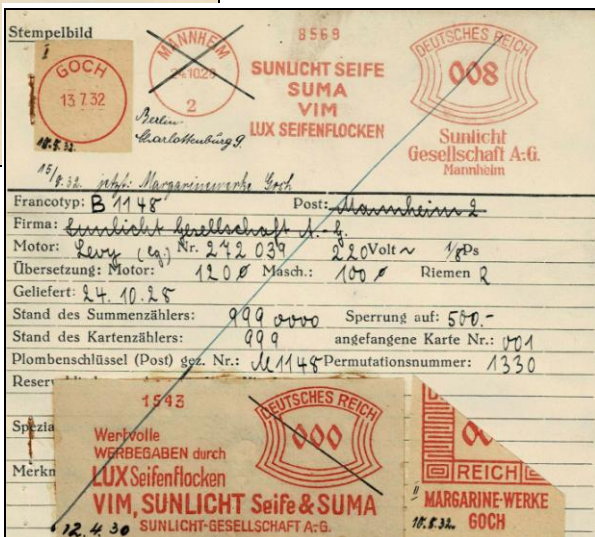 Stempelbild
I
GOCH
13 7.32
18.8.32.
MANNHEIM
24.10.28
2
Berlin-
Charlottenburg 9.
8569
SUNLICHT SEIFE
SUMA
VIM
LUX SEIFENFLOCKEN
DEUTSCHES REICH
008
Sunlicht
Gesellschaft A.-G.
Mannheim
15/8.32. jetzt: Margarinewerke Goch
Francotyp: B 1148 Post: Mannheim 2
Firma: Sunlicht Gesellschaft A.-G.
Motor: Levy (Cg.) Nr. 272 039 220 Volt ~ 1/8 Ps
Übersetzung: Motor: 120 ø Masch.: 100 ø Riemen R
Geliefert: 24. 10. 28
Stand des Summenzählers: 999 0000 Sperrung auf: 500.-
Stand des Kartenzählers: 999 angefangene Karte Nr.: 001
Plombenschlüssel (Post) gez. Nr.: M1148 Permutationsnummer: 1330
Reser
Spezia
Merkn
1543
Wertvolle
WERBEGABEN durch
LUX Seifenflocken
VIM, SUNLICHT Seife & SUMA
SUNLICHT-GESELLSCHAFT A.-G.
12. 4. 30
DEUTSCHES REICH
000
REICH
II
MARGARINE-WERKE
GOCH
18.8.32.